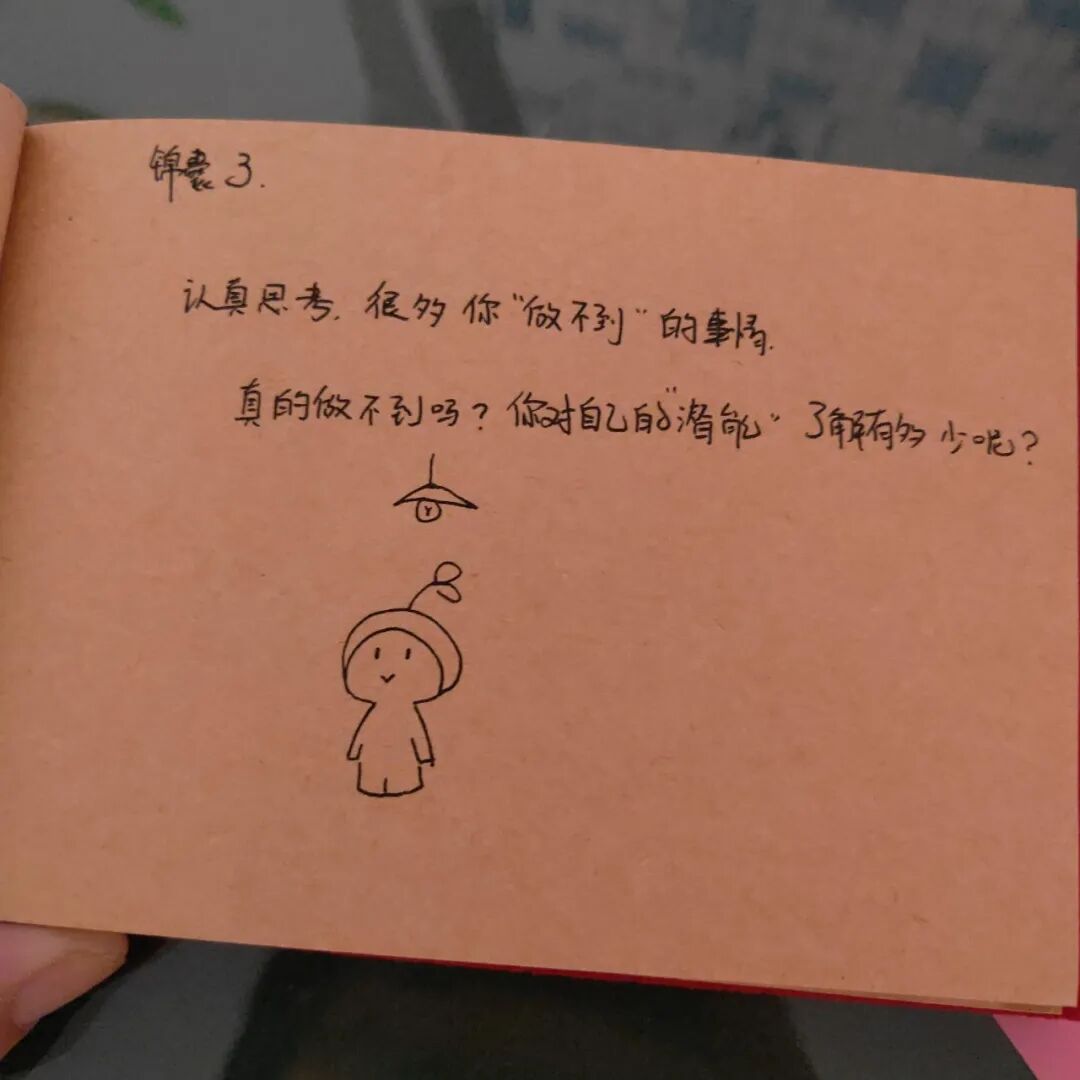 锦囊3.
认真思考,很多你"做不到"的事情.
真的做不到吗?你对自己的"潜能"了解有多少呢?